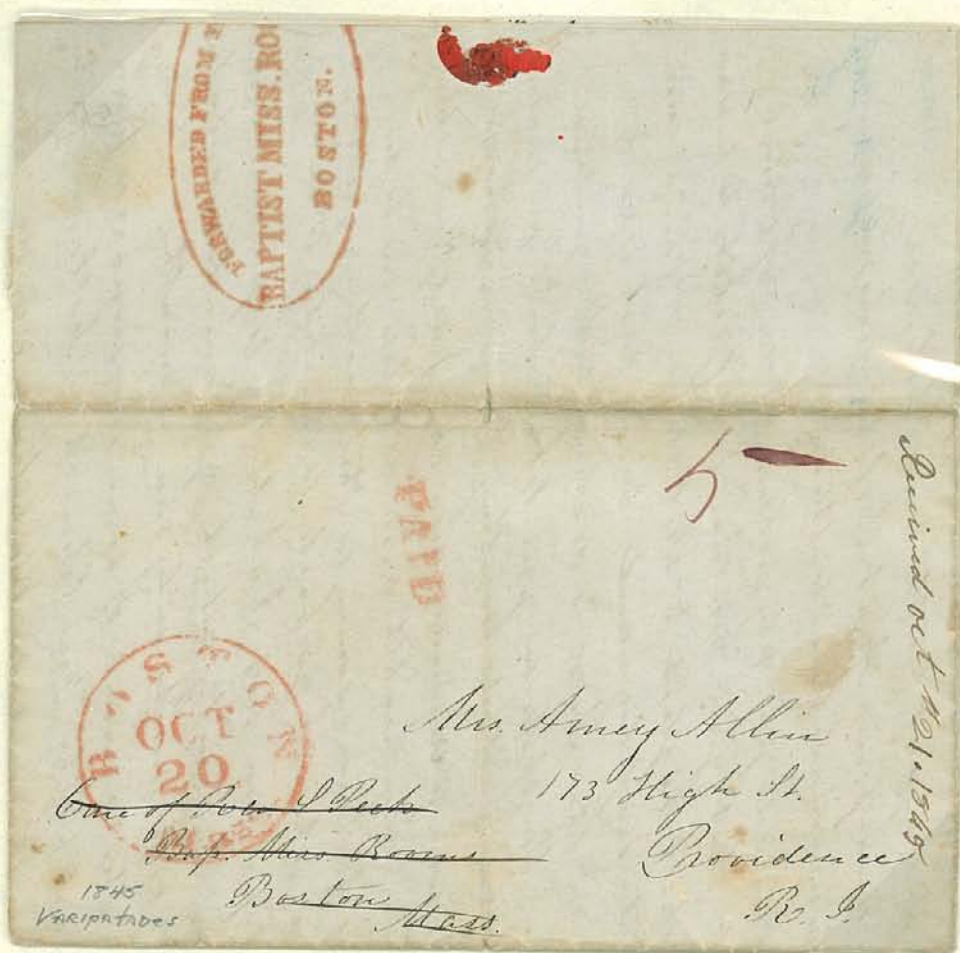 FORWARDED FROM
BAPTIST MISS. RO
BOSTON.
5
PAID
Received oct 21. 1849
BOSTON
OCT
20
MASS
Mrs. Amey Allin
173 High St.
Providence
R. I.
Care of Rev S Peck
Bap. Miss Rooms
Boston
Mass.
1845